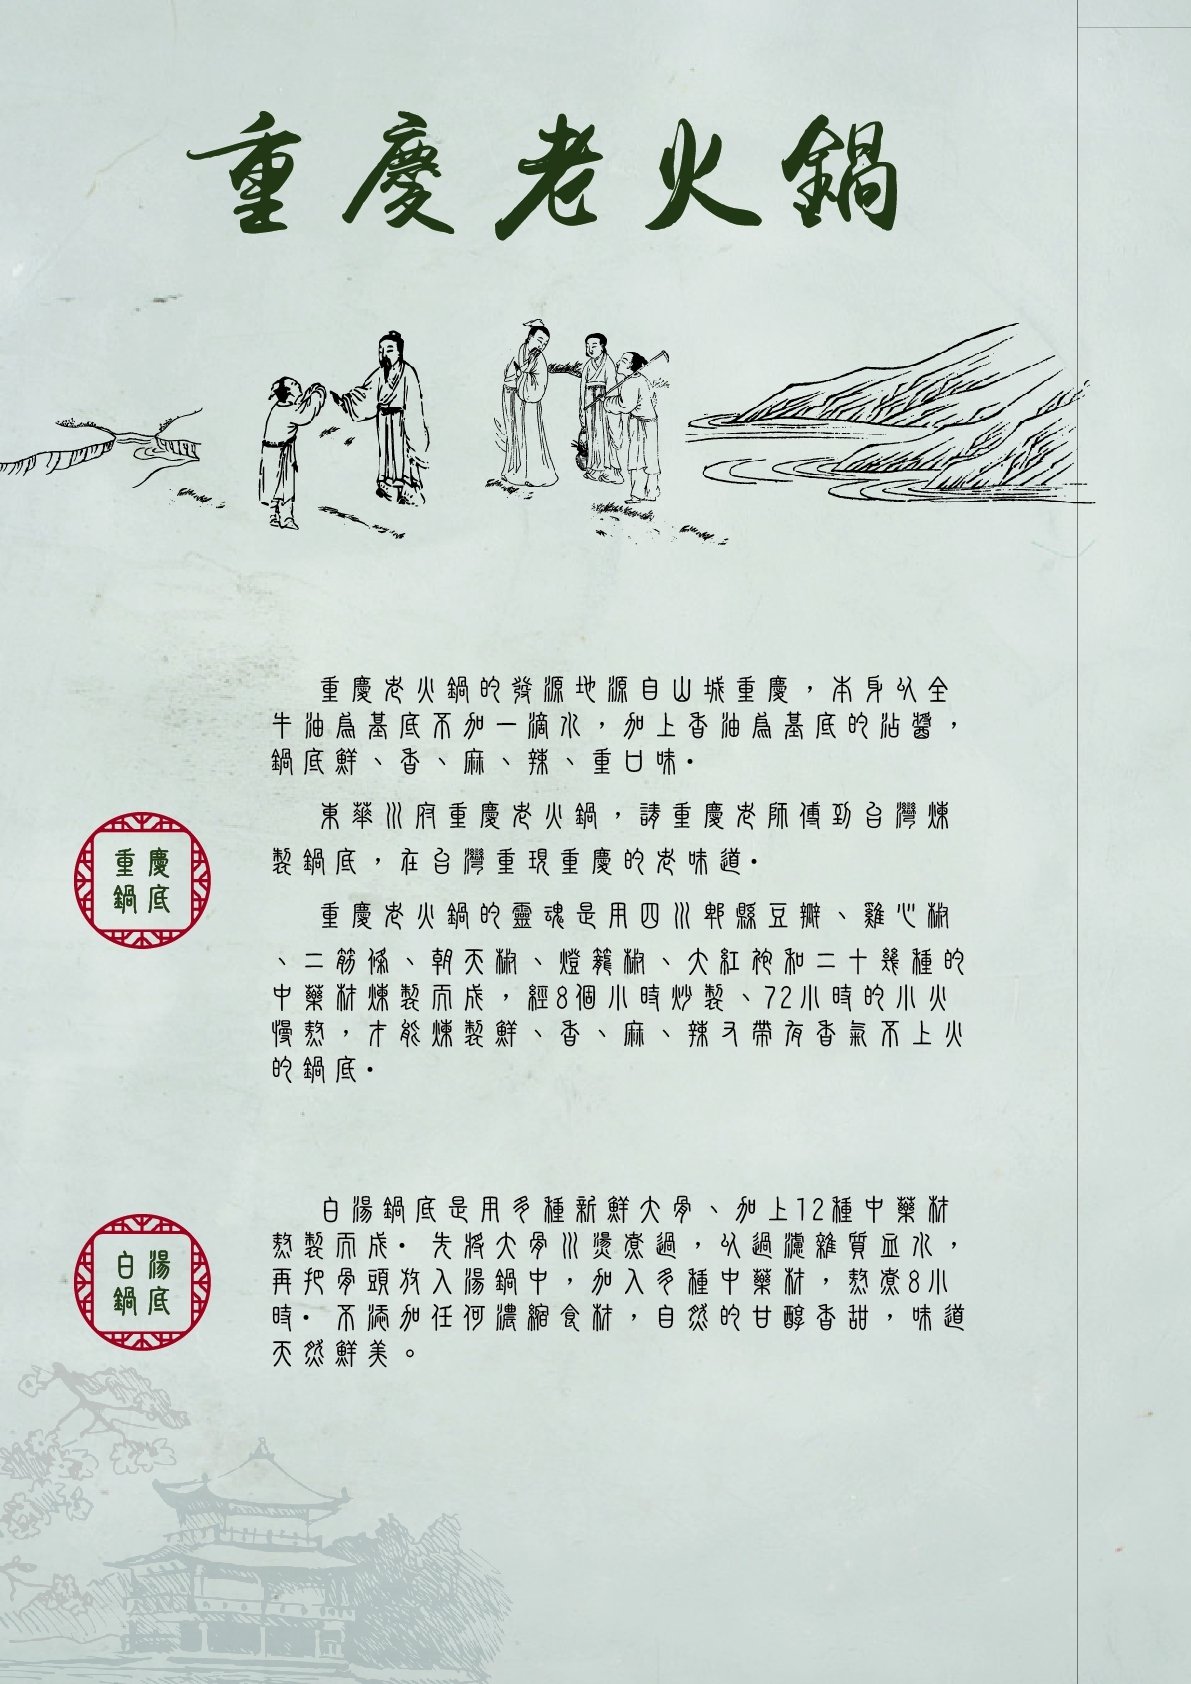 重慶老火鍋
重慶老火鍋的發源地源自山城重慶，本身以全
牛油為基底不加一滴水，加上香油為基底的沾醬，
鍋底鮮、香、麻、辣、重口味．
東華川府重慶老火鍋，請重慶老師傅到台灣煉
製鍋底，在台灣重現重慶的老味道．
重慶鍋底
重慶老火鍋的靈魂是用四川郫縣豆瓣、雞心椒
、二筋條、朝天椒、燈籠椒、大紅袍和二十幾種的
中藥材煉製而成，經8個小時炒製、72小時的小火
慢熬，才能煉製鮮、香、麻、辣又帶有香氣不上火
的鍋底．
白湯鍋底是用多種新鮮大骨、加上12種中藥材
熬製而成．先將大骨川燙煮過，以過濾雜質血水，
再把骨頭放入湯鍋中，加入多種中藥材，熬煮8小
時．不添加任何濃縮食材，自然的甘醇香甜，味道
天然鮮美。
白湯鍋底